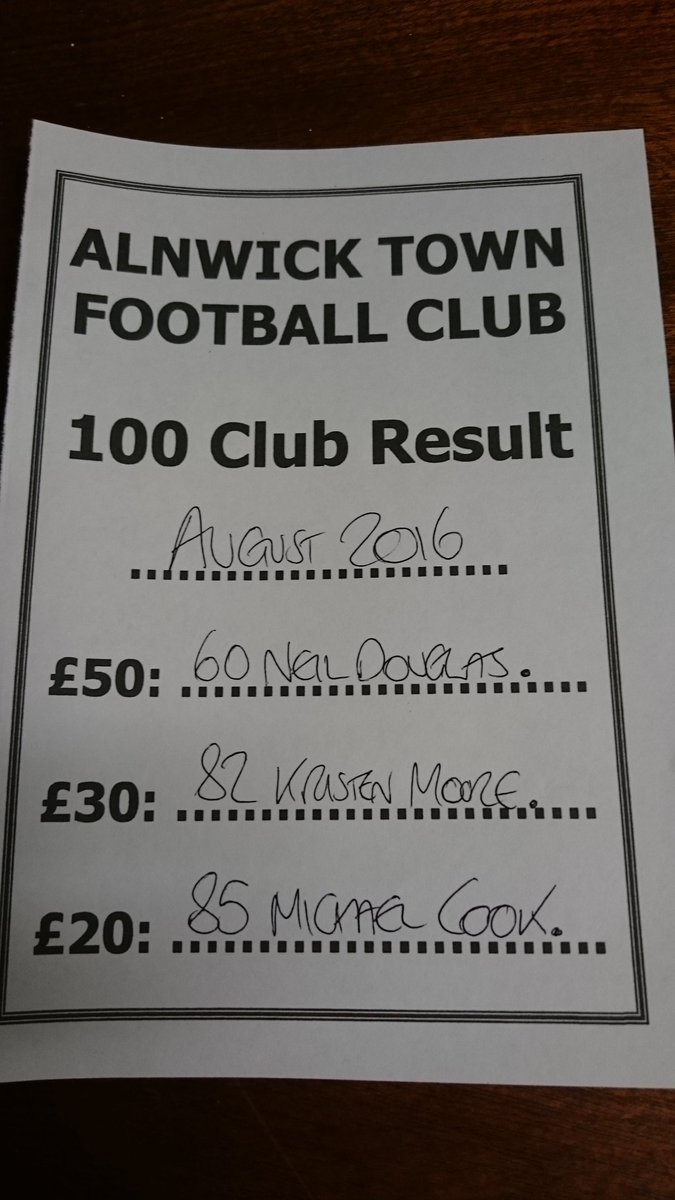 ALNWICK TOWN
FOOTBALL CLUB
100 Club Result
AUGUST 2016
£50: 60 NEIL DOUGLAS.
£30: 82 KRISTEN MOORE.
£20: 85 MICHAEL COOK.